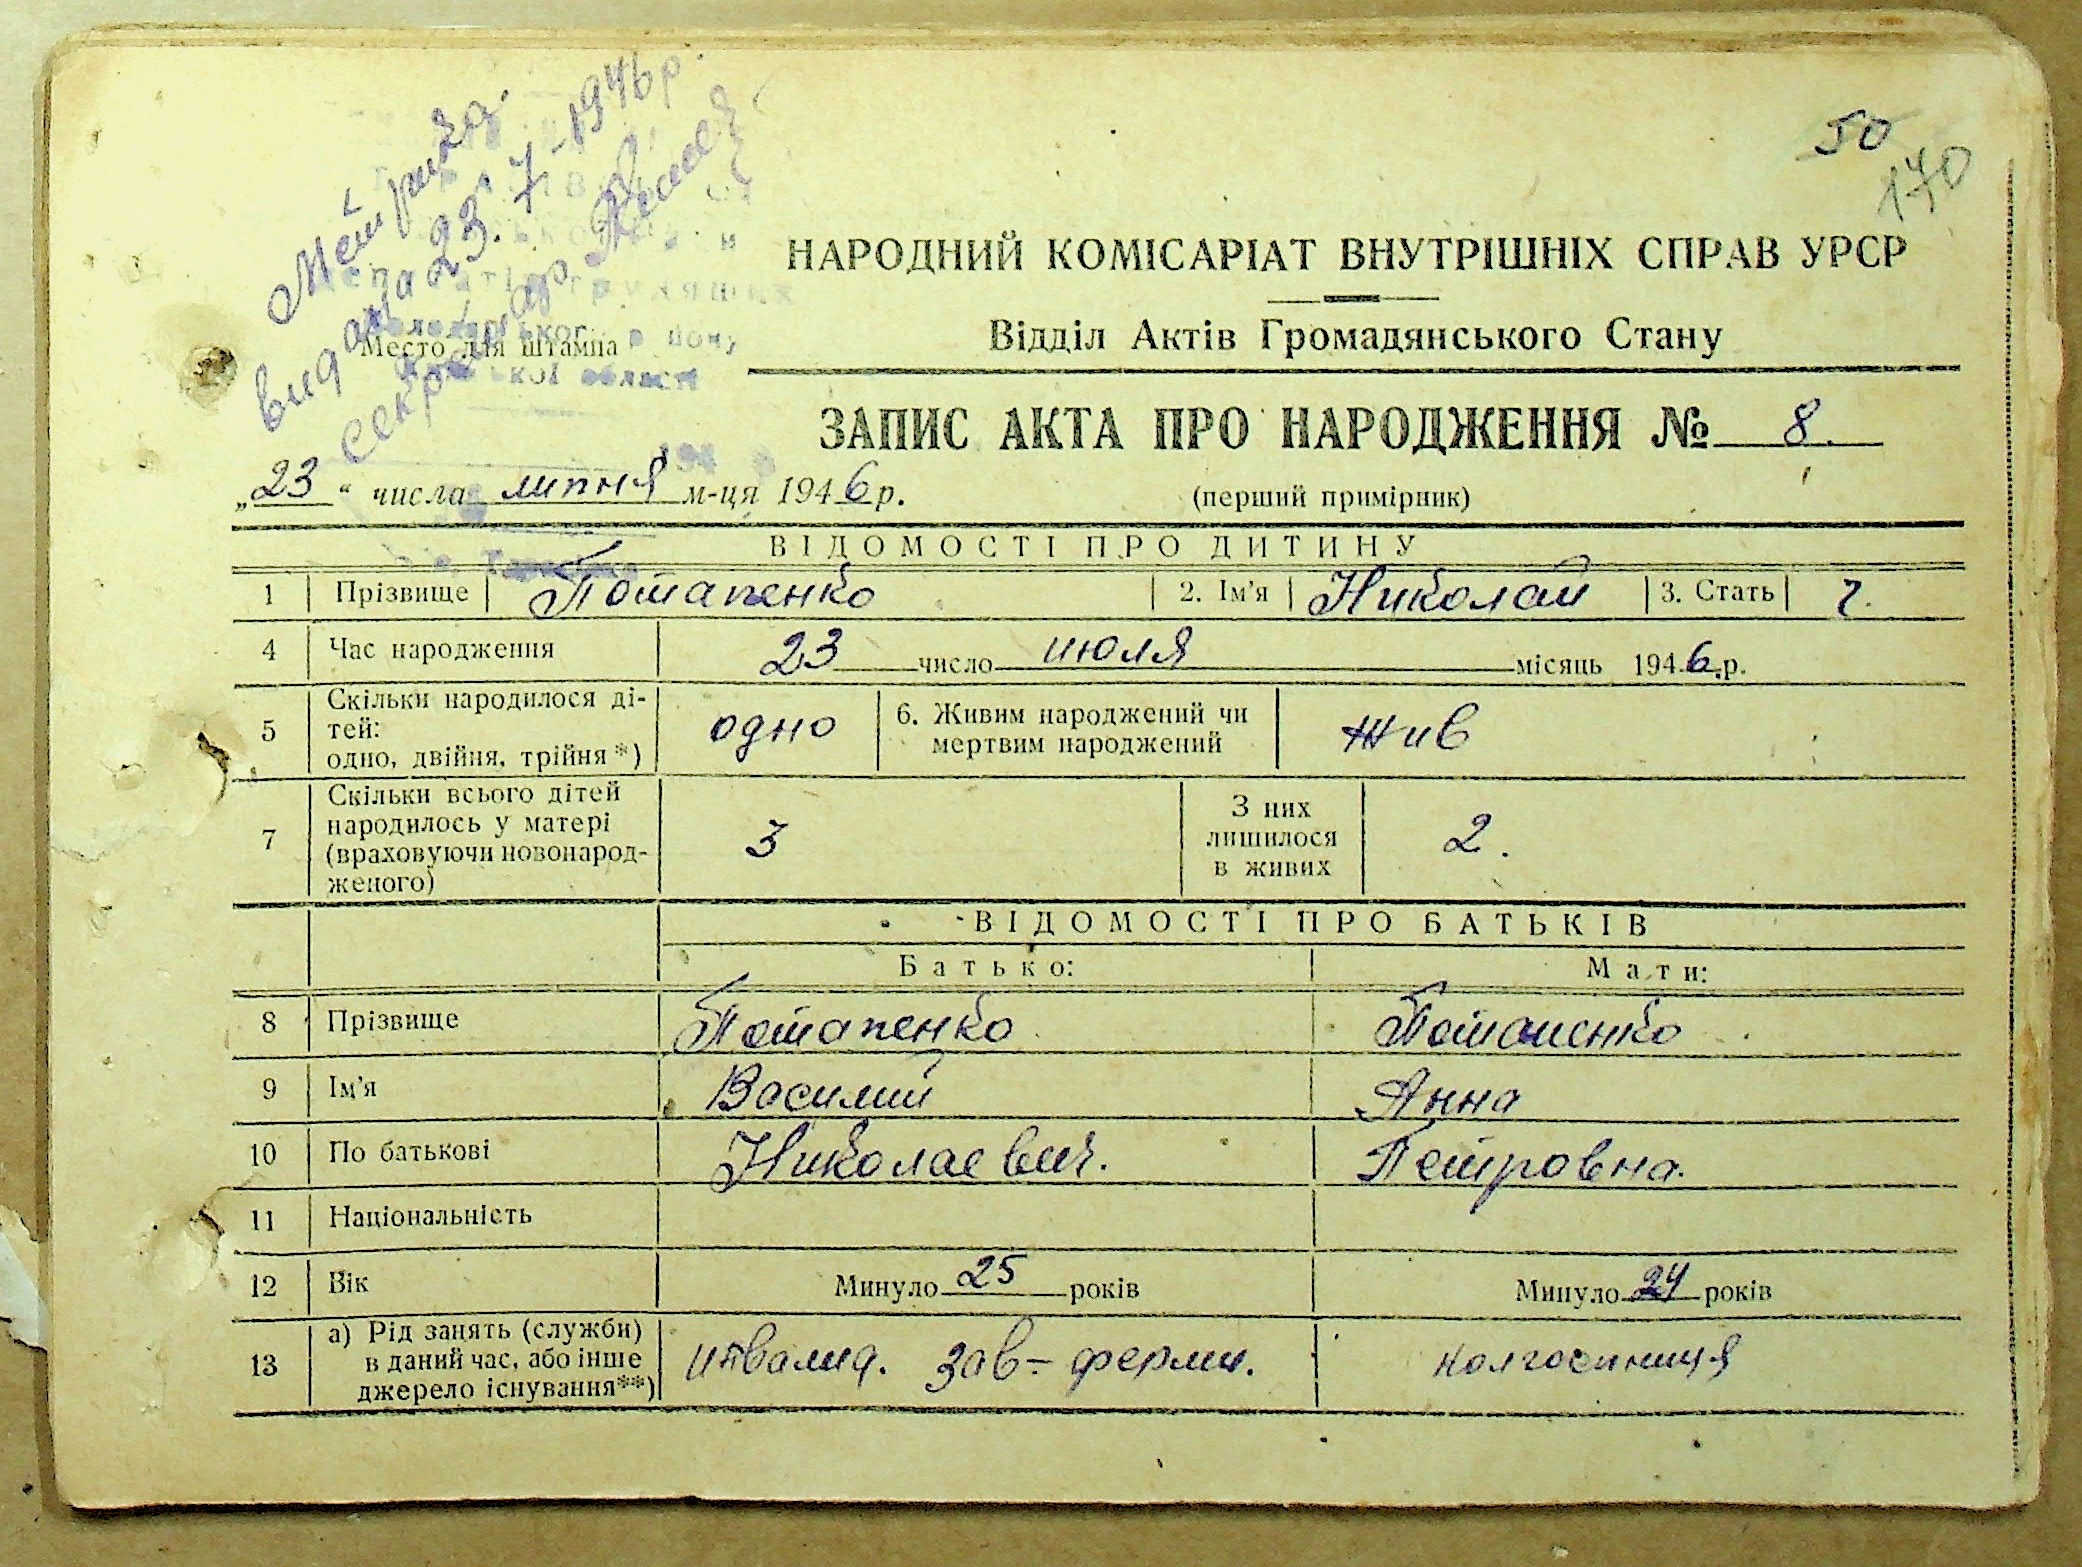 Метрика
видана 23.7-1946 р.
секретар
50
170
НАРОДНИЙ КОМІСАРІАТ ВНУТРІШНІХ СПРАВ УРСР
Место для штампа
Відділ Актів Громадянського Стану
області
ЗАПИС АКТА ПРО НАРОДЖЕННЯ № 8.
„23“ числа липня м-ця 1946 р.
(перший примірник)
ВІДОМОСТІ ПРО ДИТИНУ
1 Прізвище Потапенко 2. Ім'я Николай 3. Стать ч.
4 Час народження 23 число июля місяць 1946.р.
5 Скільки народилося ді-
тей:
одно, двійня, трійня *) одно 6. Живим народжений чи
мертвим народжений жив
7 Скільки всього дітей
народилось у матері
(враховуючи новонарод-
женого) 3 З них
лишилося
в живих 2.
ВІДОМОСТІ ПРО БАТЬКІВ
Батько: Мати:
8 Прізвище Потапенко Потапенко
9 Ім'я Василий Анна
10 По батькові Николаевич. Петровна.
11 Національність
12 Вік Минуло 25 років Минуло 24 років
13 а) Рід занять (служби)
в даний час, або інше
джерело існування**) инвалид. Зав-ферми. колгоспниця